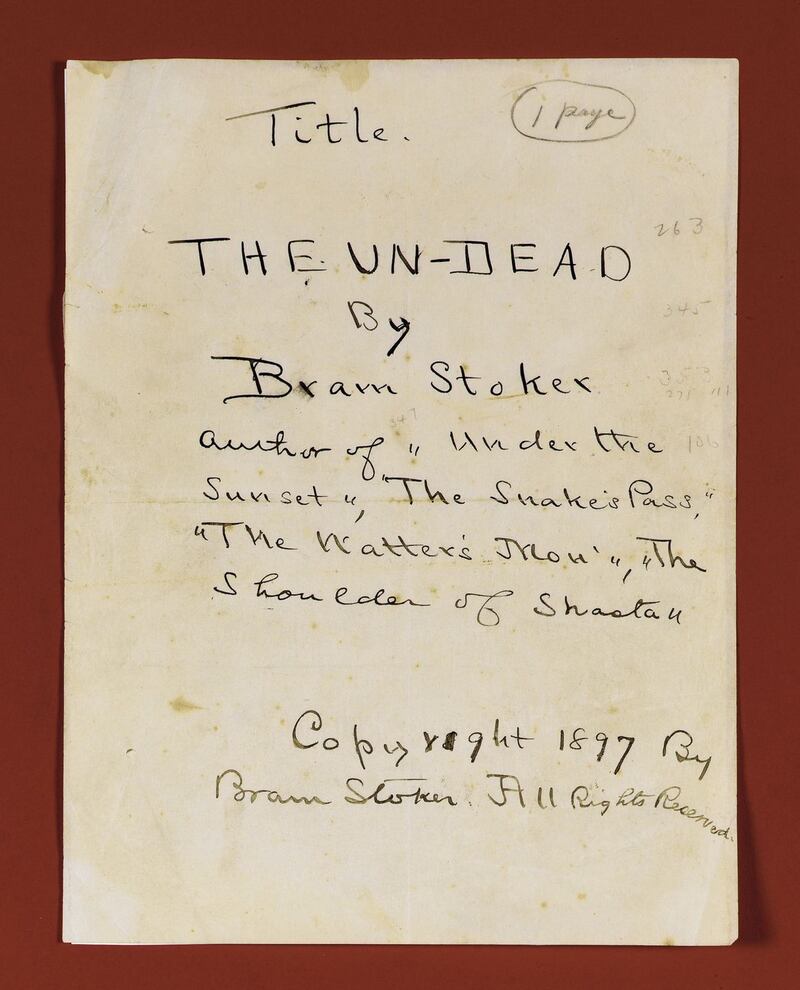 Title.
1 page
263
THE UN-DEAD
By
345
Bram Stoker
353
author of „ Under the
106
Sunset „, "The Snake's Pass,"
"The Watter's Mou' „, „The
Shoulder of Shasta „
Copyright 1897 By
Bram Stoker. All Rights Reserved.